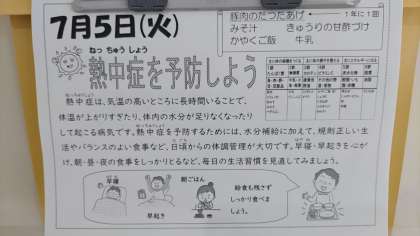 7月5日(火)
豚肉のたつたあげ ←1年に1回
みそ汁 きゅうりの甘酢づけ
かやくご飯 牛乳
ねっ ちゅう しょう
熱中症を予防しよう
熱中症は、気温の高いところに長時間いることで、
体温が上がりすぎたり、体内の水分が足りなくなったり
して起こる病気です。熱中症を予防するためには、水分補給に加えて、規則正しい生
活やバランスのよい食事など、日頃からの体調管理が大切です。早寝・早起きを心が
け、朝・昼・夜の食事をしっかりとるなど、毎日の生活習慣を見直してみましょう。
早寝
早起き
朝ごはん
給食も残さず
しっかり食べま
しょう。